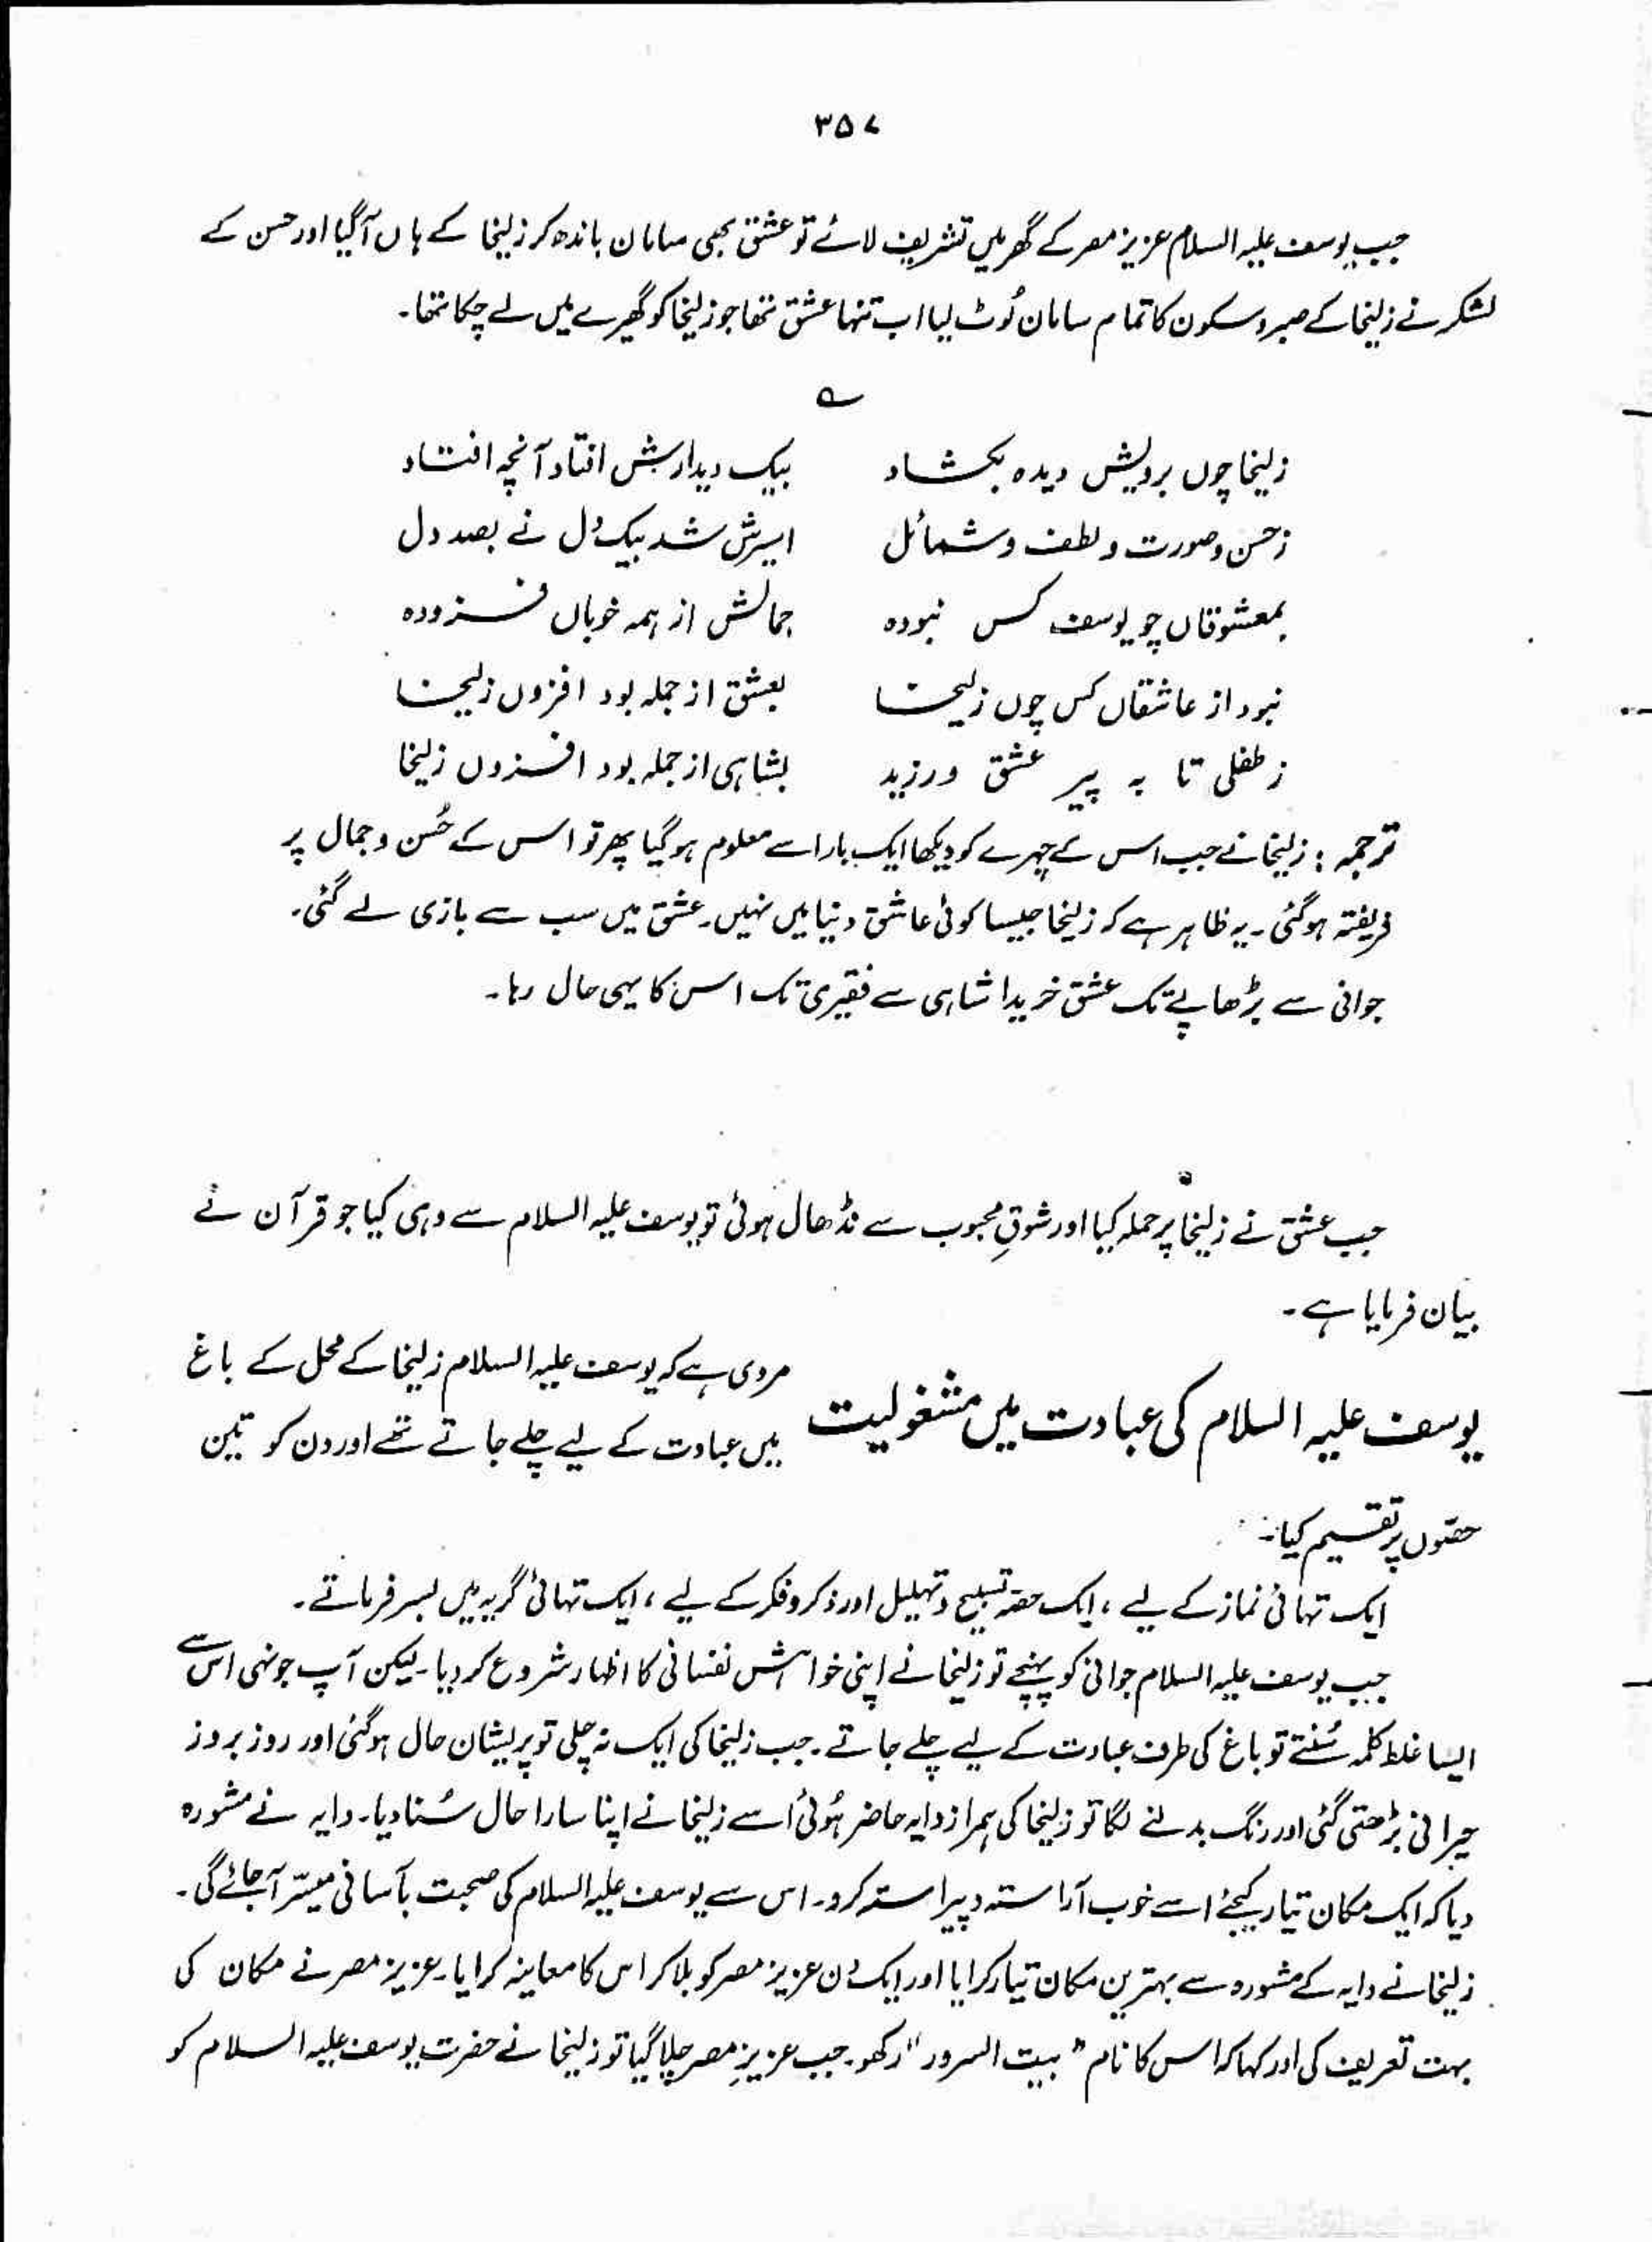 ۳۵۷
جب یوسف علیہ السلام عزیز مصر کے گھر میں تشریف لائے تو عشق بھی سامان باندھ کر زلیخا کے ہاں آگیا اور حسن کے
لشکر نے زلیخا کے صبر و سکون کا تمام سامان لُوٹ لیا اب تنہا عشق تھا جو زلیخا کو گھیرے میں لے چکا تھا۔
ے
زلیخا چوں برویش دیدہ بکشاد بیک دیدارش افتاد آنچہ افتاد
زحسن وصورت و لطف و شمائل اسیرش شد بیک دل نے بصد دل
بمعشوقاں چو یوسف کس نبودہ جمالش از ہمہ خوباں فزودہ
نبود از عاشقاں کس چوں زلیخا بعشق از جملہ بود افزوں زلیخا
ز طفلی تا بہ پیر عشق ورزید بشاہی از جملہ بود افزوں زلیخا
ترجمہ : زلیخا نے جب اس کے چہرے کو دیکھا ایک بار اسے معلوم ہوگیا پھر تو اس کے حُسن و جمال پر
فریفتہ ہوگئی۔ یہ ظاہر ہے کہ زلیخا جیسا کوئی عاشق دنیا میں نہیں۔ عشق میں سب سے بازی لے گئی۔
جوانی سے بڑھاپے تک عشق خریدا شاہی سے فقیری تک اس کا یہی حال رہا۔
جب عشق نے زلیخا پر حملہ کیا اور شوقِ محبوب سے نڈھال ہوئی تو یوسف علیہ السلام سے وہی کیا جو قرآن نے
بیان فرمایا ہے۔
یوسف علیہ السلام کی عبادت میں مشغولیت
مروی ہے کہ یوسف علیہ السلام زلیخا کے محل کے باغ
میں عبادت کے لیے چلے جاتے تھے اور دن کو تین
حصّوں پر تقسیم کیا۔
ایک تہائی نماز کے لیے ، ایک حصّہ تسبیح و تہلیل اور ذکر و فکر کے لیے ، ایک تہائی گریہ میں بسر فرماتے۔
جب یوسف علیہ السلام جوانی کو پہنچے تو زلیخا نے اپنی خواہش نفسانی کا اظہار شروع کردیا۔ لیکن آپ جونہی اس سے
ایسا غلط کلمہ سُنتے تو باغ کی طرف عبادت کے لیے چلے جاتے۔ جب زلیخا کی ایک نہ چلی تو پریشان حال ہوگئی اور روز بروز
حیرانی بڑھتی گئی اور رنگ بدلنے لگا تو زلیخا کی ہمراز دایہ حاضر ہُوئی اُسے زلیخا نے اپنا سارا حال سُنا دیا۔ دایہ نے مشورہ
دیا کہ ایک مکان تیار کیجئے اسے خوب آراستہ و پیراستہ کرو۔ اس سے یوسف علیہ السلام کی صحبت بآسانی میسّر آجائے گی۔
زلیخا نے دایہ کے مشورہ سے بہترین مکان تیار کرایا اور ایک دن عزیز مصر کو بلا کر اس کا معاینہ کرایا۔ عزیز مصر نے مکان کی
بہت تعریف کی اور کہا کہ اس کا نام " بیت السرور " رکھو۔ جب عزیزِ مصر چلا گیا تو زلیخا نے حضرت یوسف علیہ السلام کو